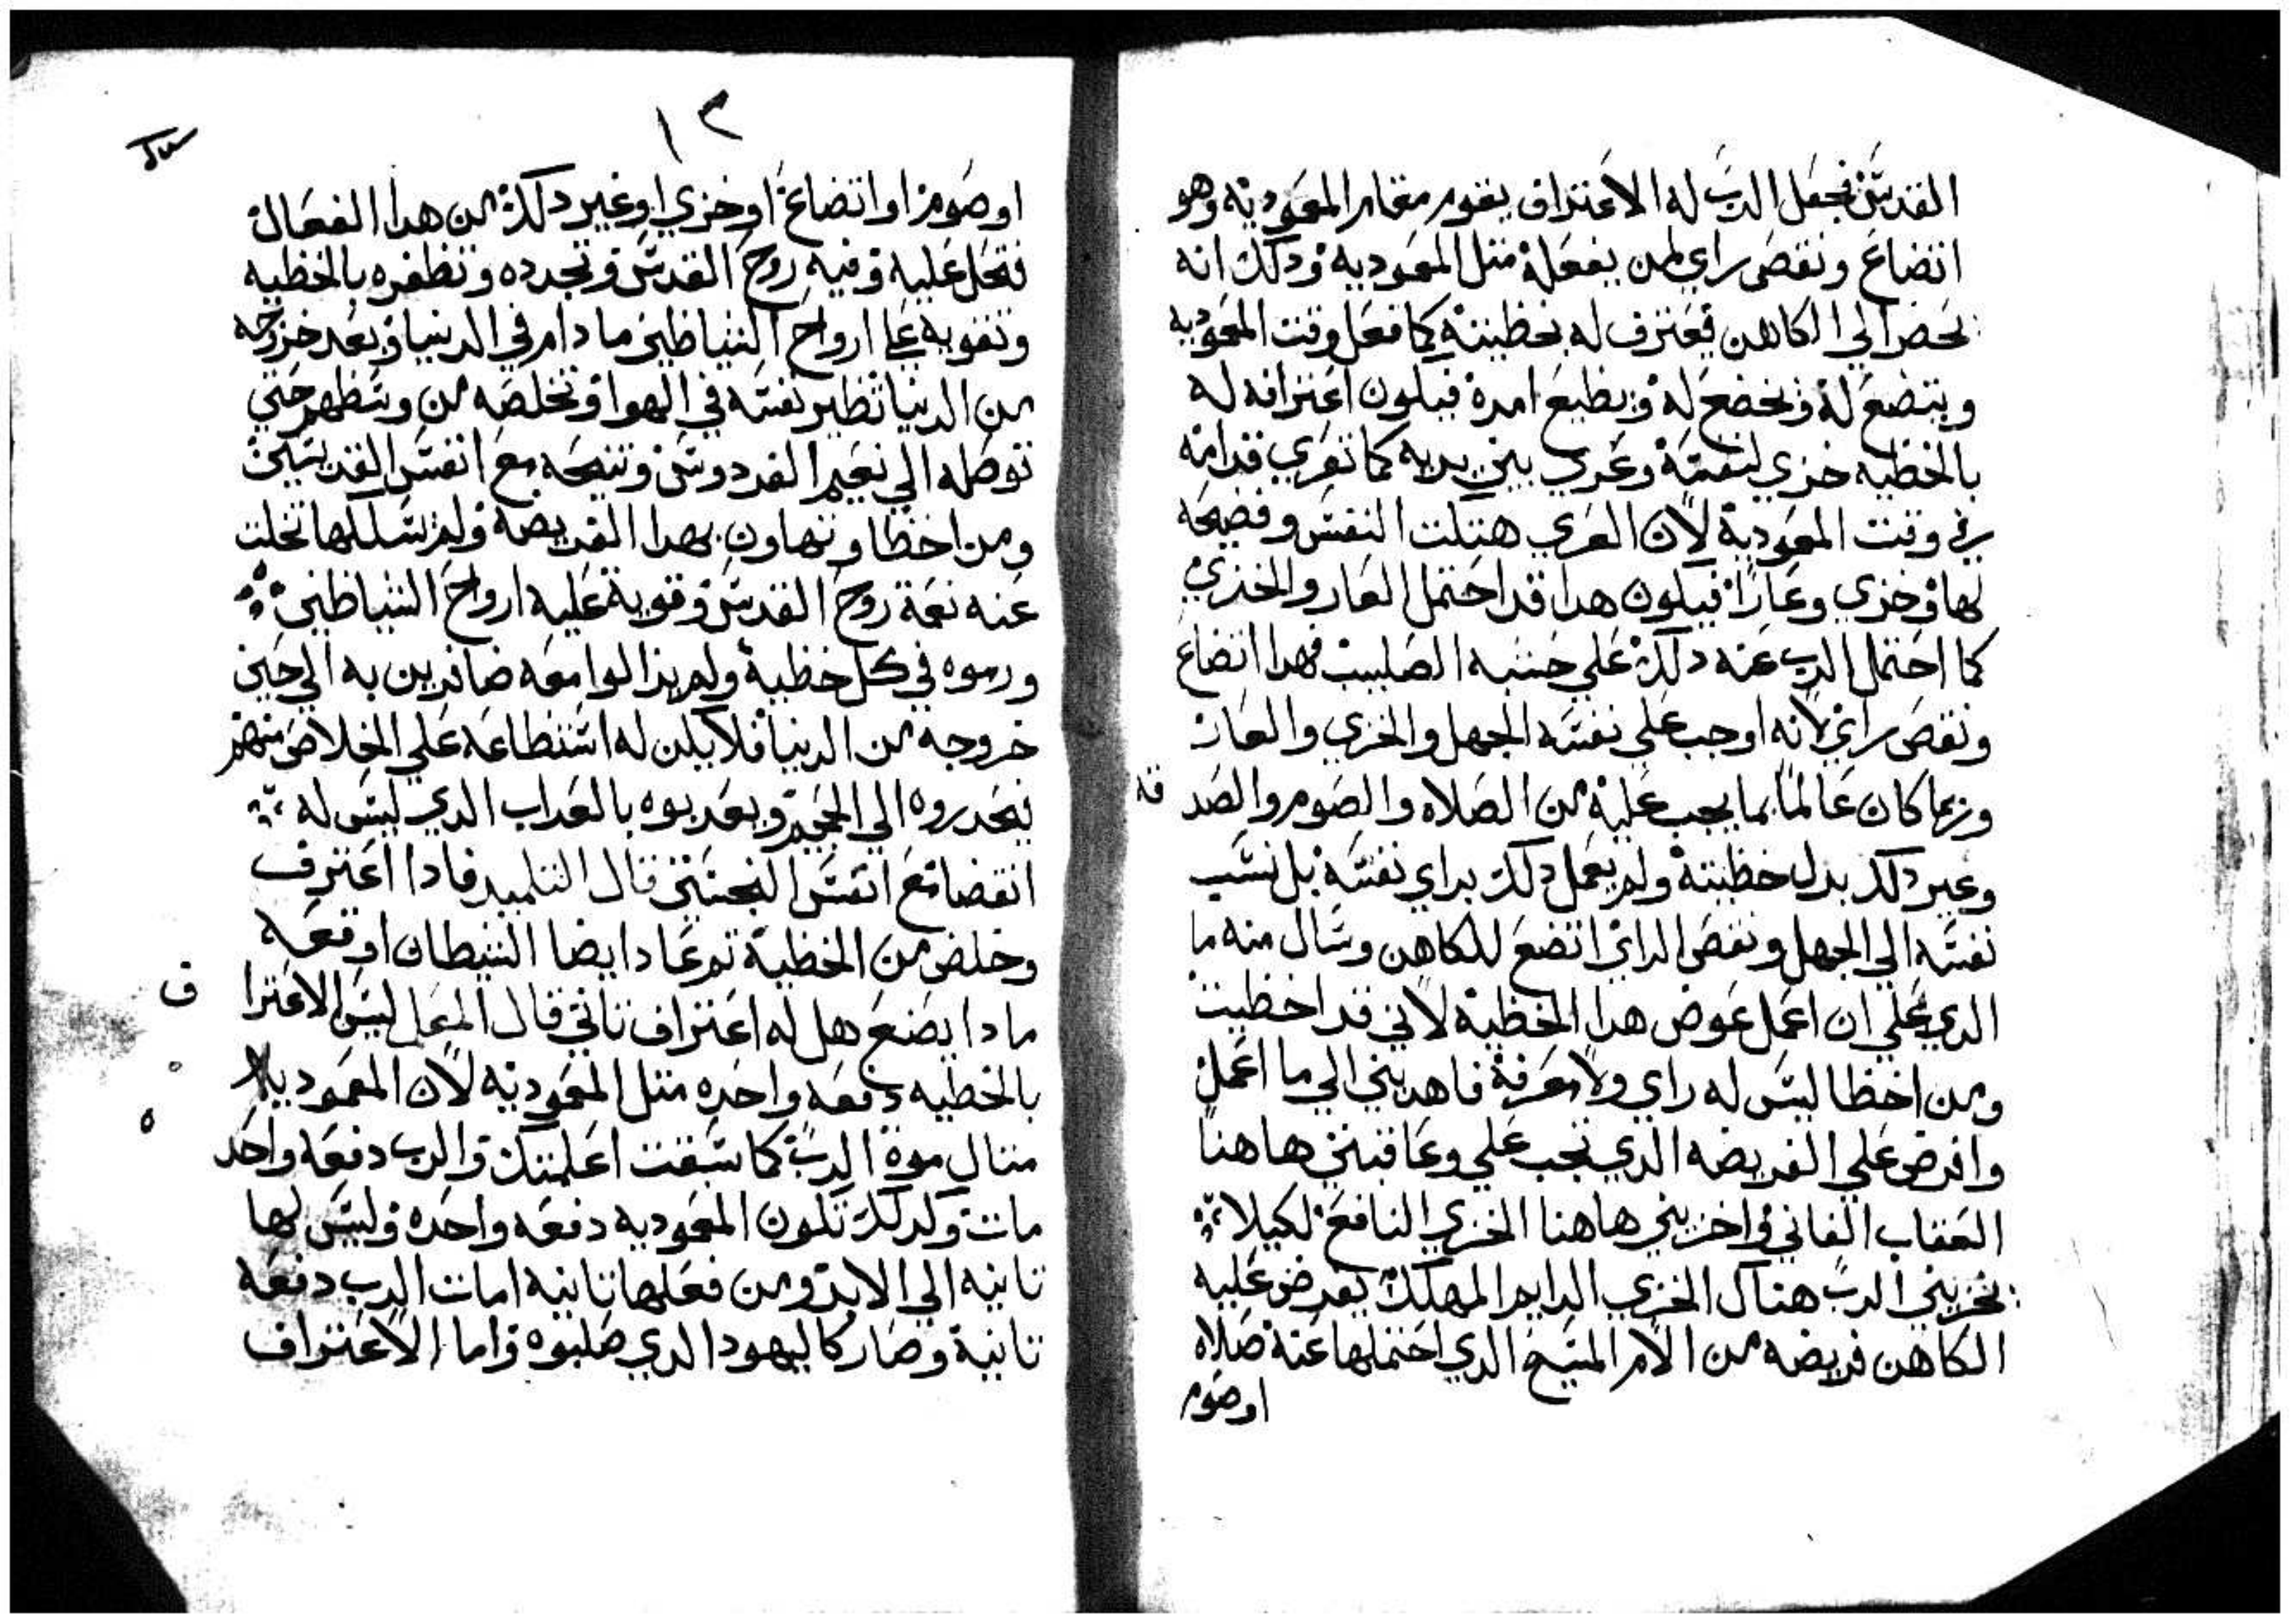 القدس فجعل الرب له الاعتراف يقوم مقام المعموديه وهو
اتضاع ونقص راي لمن يفعله متل المعموديه وذلك انه
يحضر الي الكاهن فيعترف له بخطيته كما فعل وقت المعموديه
ويتضع له ويخضع له ويطيع امره فيكون اعترافه له
بالخطيه خزي لنفسه وعري بين يديه كما تعري قدامه
في وقت المعموديه لان العري هتكت النفس وفضيحه
لها وخزي وعارا فيكون هدا قد احتمل العار والخزي
كما احتمل الرب عنه دلك علي خشبه الصليب فهدا اتضاع
ونقص راي لانه اوجب علي نفسه الجهل والخزي والعار
وربما كان عالما بما يجب عليه من الصلاه والصوم والصد قه
وغير دلك بدل خطيته ولم يعمل دلك براي نفسه بل نسب
نفسه الي الجهل ونقص الراي اتضع للكاهن وسال منه ما
الدي علي ان اعمل عوض هدا الخطيه لاني قد اخطيت
ومن اخطا ليس له راي ولا معرفة فاهديني الي ما اعمل
وافرض علي الفريضه الدي تجب علي وعاقبني هاهنا
العقاب الفاني واخزيني هاهنا الخزي النافع لكيلا
يخزيني الرب هناك الخزي الدايم المهلك يفرض عليه
الكاهن فريضه من الام المسيح الدي احتملها عنه صلاه
او صوم
١٢
او صوم او اتضاع او خزي او غير دلك من هدا الفعال
فتحل عليه وفيه روح القدس وتجدده وتظفره بالخطيه
وتقويه علي ارواح الشياطين ما دام في الدنيا وبعد خروجه
من الدنيا تطير نفسه في الهوا وتخلصه من وسطهم حتي
توصله الي نعيم الفردوس وتنيحه مع انفس القديسين
ومن اخطا وتهاون بهدا الفريضة ولم يسلكها تخلت
عنه نعمة روح القدس وقوية عليه ارواح الشياطين
ورموه في كل خطية ولم يزالوا معه ضافرين به الي حين
خروجه من الدنيا فلا يكن له استطاعه علي الخلاص منهم
فيحدروه الي الجحيم ويعدبوه بالعداب الدي ليس له
انقضا مع انفس النجسين قال التلميد فادا اعترف
وخلص من الخطية تم عاد ايضا الشيطان اوقعه
مادا يصنع هل له اعتراف تاني قال المعلم ليس الاعترا ف
بالخطيه دفعه واحده متل المعموديه لان المعموديه
متال موة الرب كما سبقت اعلمتك والرب دفعه واحد ه
مات وكدلك تكون المعموديه دفعه واحده وليس لها
تانيه الي الابد ومن فعلها تانيه امات الرب دفعه
تانية وصار كاليهود الدي صلبوه واما الاعتراف